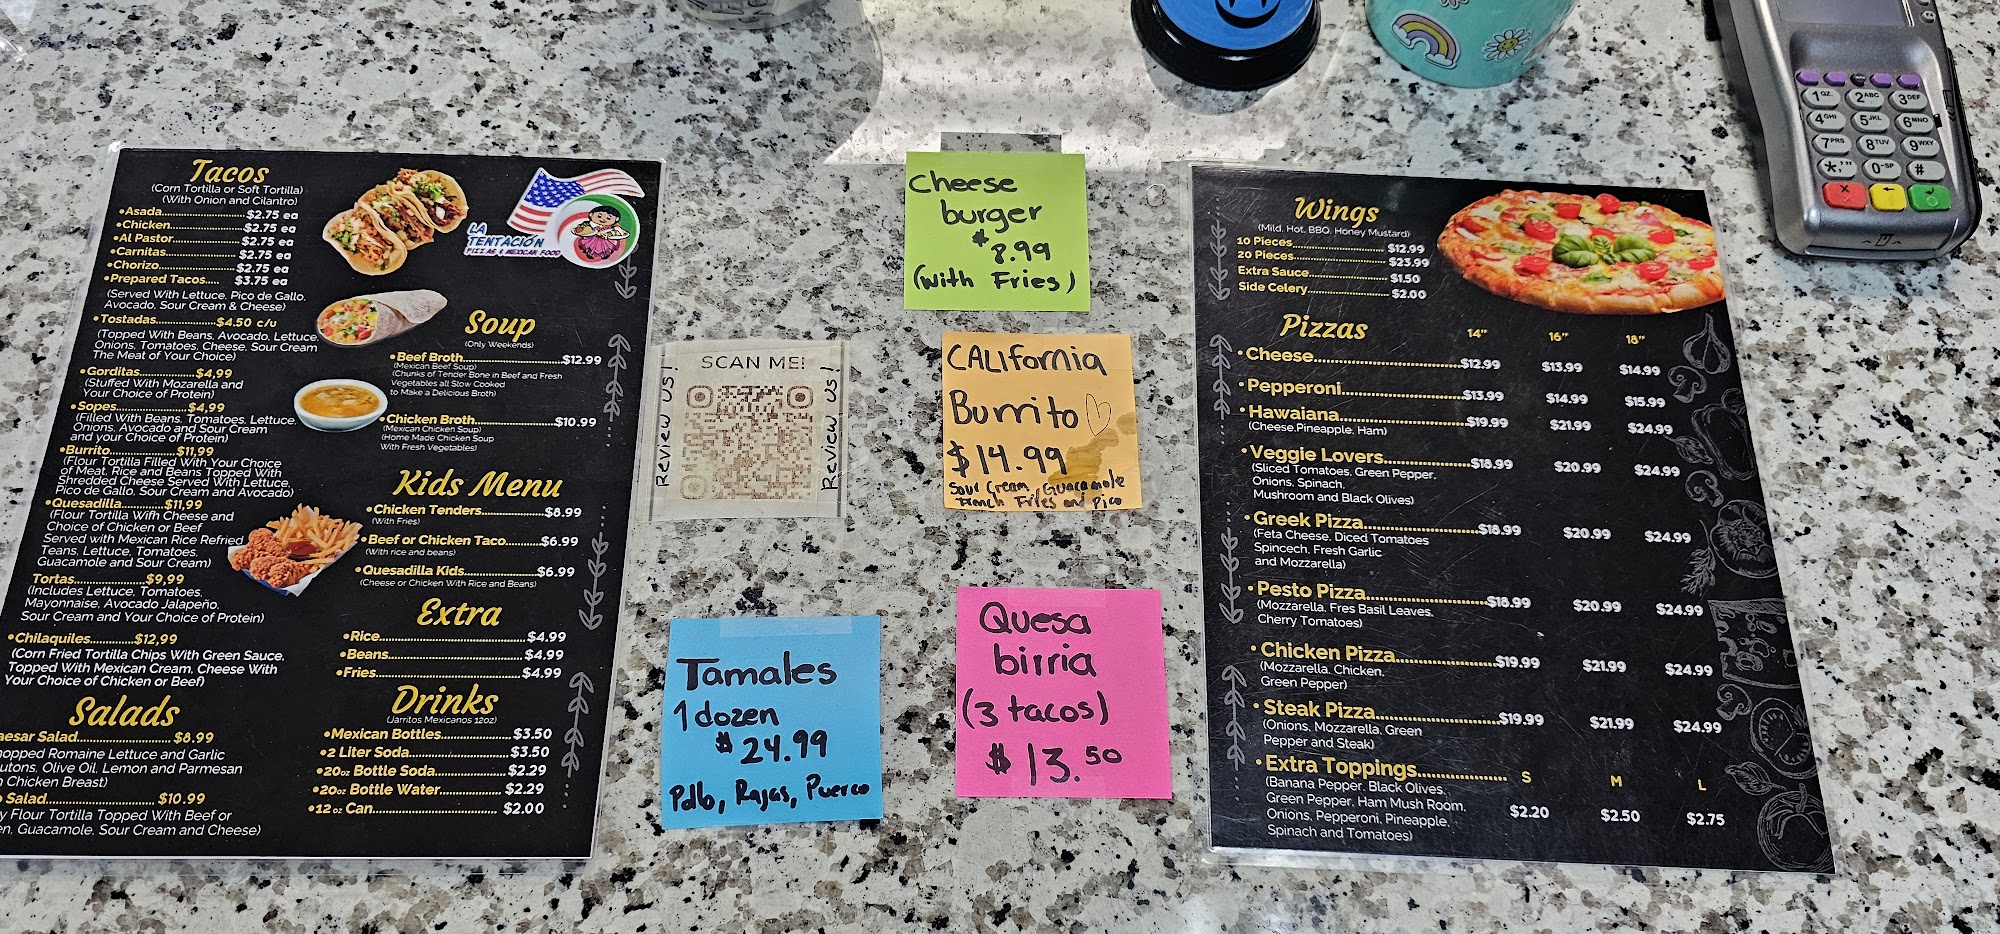 Tacos
(Corn Tortilla or Soft Tortilla)
(With Onion and Cilantro)
•Asada............................$2.75 ea
•Chicken.........................$2.75 ea
•Al Pastor.......................$2.75 ea
•Carnitas........................$2.75 ea
•Chorizo.........................$2.75 ea
•Prepared Tacos.....$3.75 ea
(Served With Lettuce, Pico de Gallo,
Avocado, Sour Cream & Cheese)
•Tostadas....................$4.50 c/u
(Topped With Beans, Avocado, Lettuce,
Onions, Tomatoes, Cheese, Sour Cream
The Meat of Your Choice)
•Gorditas....................$4,99
(Stuffed With Mozarella and
Your Choice of Protein)
•Sopes........................$4,99
(Filled With Beans, Tomatoes, Lettuce,
Onions, Avocado and Sour Cream
and your Choice of Protein)
•Burrito....................$11,99
(Flour Tortilla Filled With Your Choice
of Meat, Rice and Beans Topped With
Shredded Cheese Served With Lettuce,
Pico de Gallo, Sour Cream and Avocado)
•Quesadilla..............$11,99
(Flour Tortilla Wifh Cheese and
Choice of Chicken or Beef
Served with Mexican Rice Refried
Teans, Lettuce, Tomatoes,
Guacamole and Sour Cream)
Tortas....................$9,99
(Includes Lettuce, Tomatoes,
Mayonnaise, Avocado Jalapeño,
Sour Cream and Your Choice of Protein)
•Chilaquiles............$12,99
(Corn Fried Tortilla Chips With Green Sauce,
Topped With Mexican Cream, Cheese With
Your Choice of Chicken or Beef)
Salads
aesar Salad.....................$8.99
hopped Romaine Lettuce and Garlic
utons, Olive Oil, Lemon and Parmesan
n Chicken Breast)
o Salad........................... $10.99
y Flour Tortilla Topped With Beef or
en, Guacamole, Sour Cream and Cheese)
LA
TENTACIÓN
PIZZAS & MEXICAN FOOD
Soup
(Only Weekends)
•Beef Broth..............................$12.99
(Mexican Beef Soup)
(Chunks of Tender Bone in Beef and Fresh
Vegetables all Slow Cooked
to Make a Delicious Broth)
•Chicken Broth.........................$10.99
(Mexican Chicken Soup)
(Home Made Chicken Soup
With Fresh Vegetables)
Kids Menu
•Chicken Tenders...................$8.99
(With Fries)
•Beef or Chicken Taco..........$6.99
(With rice and beans)
•Quesadilla Kids......................$6.99
(Cheese or Chicken With Rice and Beans)
Extra
•Rice........................................$4.99
•Beans.....................................$4.99
•Fries........................................$4.99
Drinks
(Jarritos Mexicanos 12oz)
•Mexican Bottles....................$3.50
•2 Liter Soda............................$3.50
•20oz Bottle Soda....................$2.29
•20oz Bottle Water..................$2.29
•12 oz Can.................................$2.00
SCAN ME!
Review us!
Review us!
Cheese
burger
$8.99
(with Fries)
CALIfornia
Burrito
$14.99
Sour Cream, Guacamole
French Fries and Pico
Tamales
1 dozen
$24.99
Pollo, Rajas, Puerco
Quesa
birria
(3 tacos)
$13.50
Wings
(Mild, Hot, BBQ, Honey Mustard)
10 Pieces........................$12.99
20 Pieces........................$23.99
Extra Sauce.....................$1.50
Side Celery......................$2.00
Pizzas 14" 16" 18"
•Cheese..............................$12.99 $13.99 $14.99
•Pepperoni.........................$13.99 $14.99 $15.99
•Hawaiana.........................$19.99 $21.99 $24.99
(Cheese,Pineapple, Ham)
•Veggie Lovers..................$18.99 $20.99 $24.99
(Sliced Tomatoes, Green Pepper,
Onions, Spinach,
Mushroom and Black Olives)
•Greek Pizza.......................$18.99 $20.99 $24.99
(Feta Cheese, Diced Tomatoes
Spincech, Fresh Garlic
and Mozzarella)
•Pesto Pizza........................$18.99 $20.99 $24.99
(Mozzarella, Fres Basil Leaves,
Cherry Tomatoes)
•Chicken Pizza....................$19.99 $21.99 $24.99
(Mozzarella, Chicken,
Green Pepper)
•Steak Pizza.........................$19.99 $21.99 $24.99
(Onions, Mozzarella, Green
Pepper and Steak)
•Extra Toppings................... S M L
(Banana Pepper, Black Olives,
Green Pepper, Ham Mush Room,
Onions, Pepperoni, Pineapple,
Spinach and Tomatoes)
$2.20 $2.50 $2.75
1 QZ. 2 ABC 3 DEF
4 GHI 5 JKL 6 MNO
7 PRS 8 TUV 9 WXY
*,'" 0-SP #